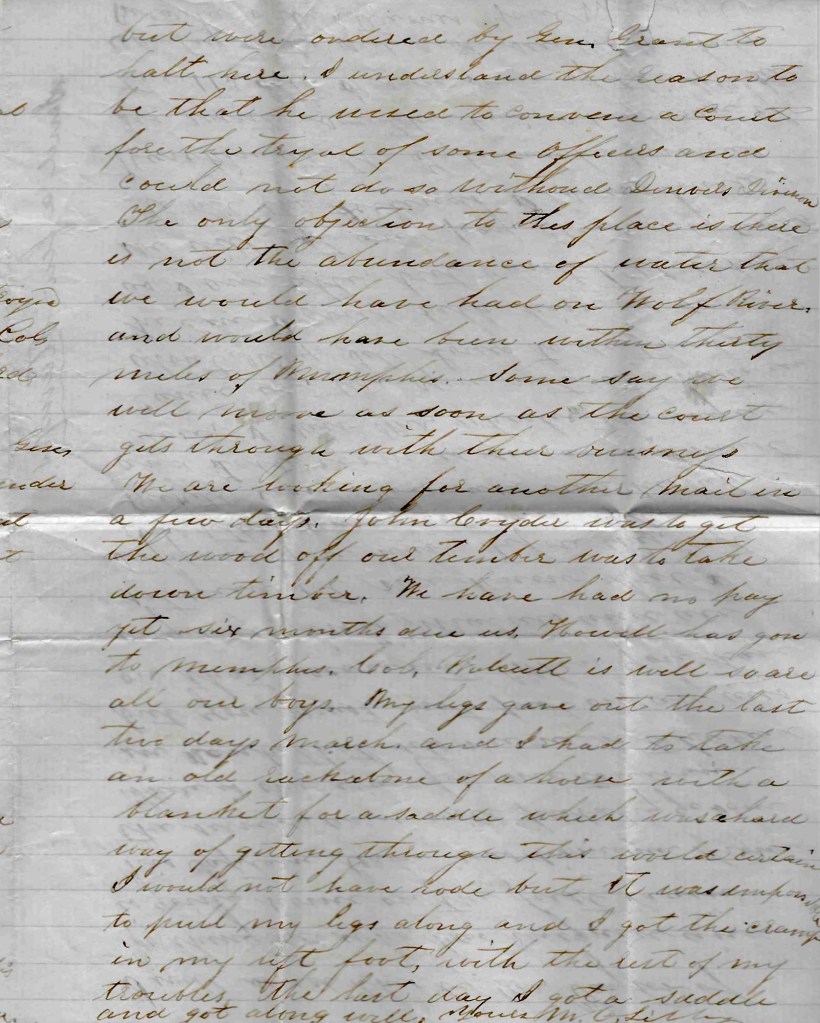 but were ordered by Gen. Grant to
halt here. I understand the reason to
be that he wised to convene a Court
fore the tryal of some officers and
could not do so without Denvers Division
The only objection to this place is there
is not the abundance of water that
we would have had on Wolf River.
and would have been within thirty
miles of Memphis. Some say we
will move as soon as the court
gets through with their buisness
We are looking for another mail in
a few days. John Cryder was to get
the wood off our timber was to take
down timber. We have had no pay
yet six months due us. Howell has gon
to Memphis. Col. Walcutt is well so are
all our boys. My legs gave out the last
two days march. and I had to take
an old rackabone of a horse with a
blanket for a saddle which was a hard
way of getting through this world certain
I would not have rode but it was impossible
to pull my legs along and I got the cramp
in my left foot, with the rest of my
troubles. the last day I got a saddle
and got along well. Yours M. C.